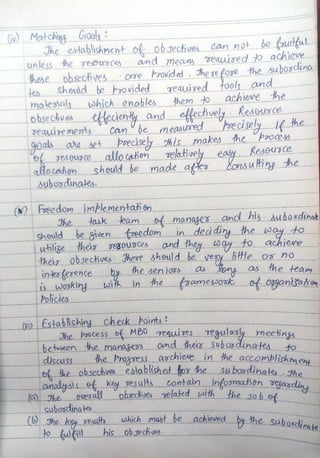 (iv) Matching Goals :
The establishment of objectives can not be fruitful
unless the resources and means required to achieve
these objectives are provided. Therefore the subordina
tes should be provided required tools and
materials which enables them to achieve the
objectives efficiently and effectively. Resource
requirements can be measured precisely if the
goals are set precisely. This makes the process
of resource allocation relatively easy. Resource
allocation should be made after consulting the
subordinates.
(v) Freedom implementation
The task team of manager and his subordinate
should be given freedom in deciding the way to
utilize their resources and they way to achieve
their objectives. There should be very little or no
interference by the seniors as long as the team
is working with in the framework of organisation
Policies.
(vi) Establishing check points :
The process of MBO requires regularly meetings
between the managers and their subordinates to
discuss the Progress archieve in the accomplishment
of the objectives established for the subordinates. The
analysis of key results contain information regarding
(a) The overall objectives related with the job of
subordinates
(b) The key results which must be achieved by the subordinate
to fulfill his objectives.